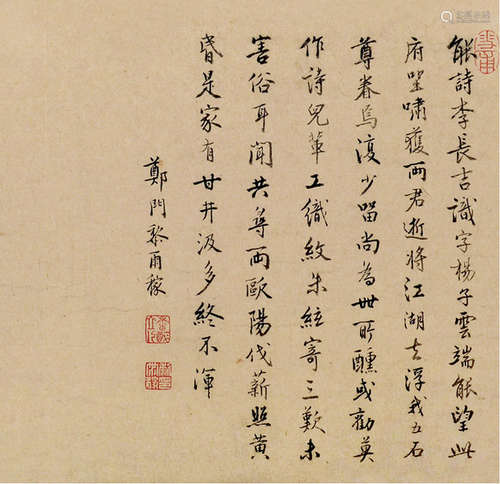 能詩李長吉識字楊子雲端能望此
府坐嘯獲兩君逝將江湖去浮我五石
尊眷焉復少留尚為世所醺或勸莫
作詩兒輩工織紋朱絃寄三歎未
害俗耳聞共尋兩歐陽伐薪照黃
昏是家有甘井汲多終不渾
鄭門黎稼